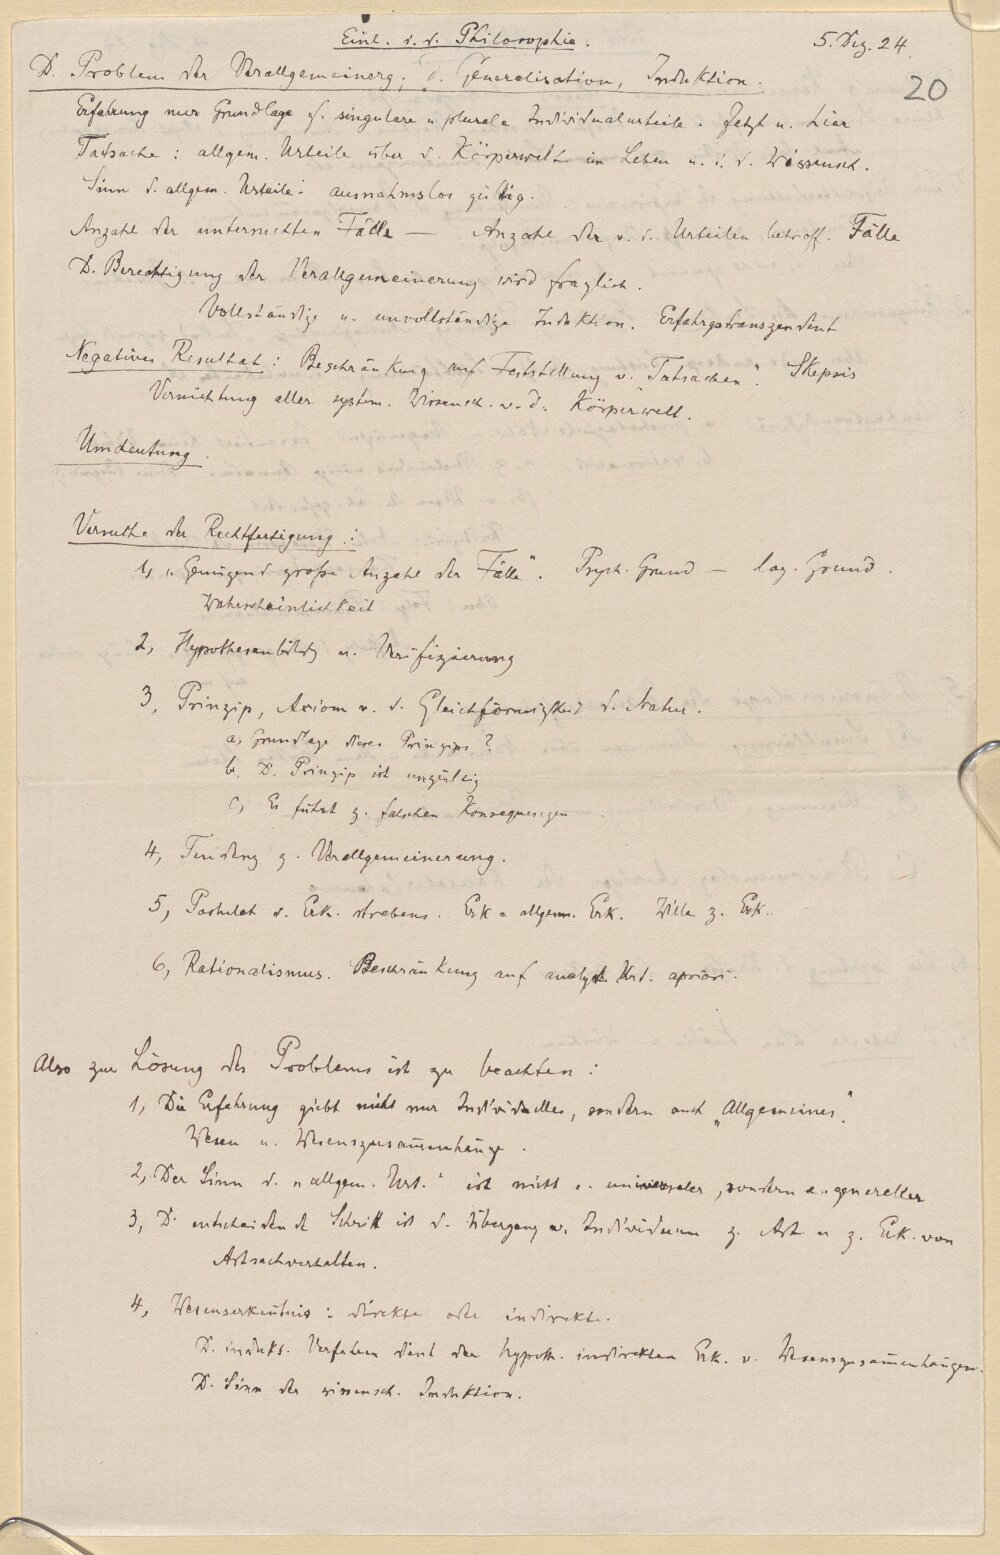 Einl. i. d. Philosophie.
5. Dez. 24
20
D. Problem der Verallgemeinerg, d. Generalisation, Induktion.
Erfahrung nur Grundlage f. singulare u. plurale Individualurteile. Jetzt u. Hier
Tatsache: allgem. Urteile über d. Körperwelt im Leben u. i. d. Wissensch.
Sinn d. allgem. Urteile: ausnahmslos gültig.
Anzahl der untersuchten Fälle — Anzahl der v. d. Urteilen betroff. Fälle
D. Berechtigung der Verallgemeinerung wird fraglich.
Vollständige u. unvollständige Induktion. Erfahrgstranszendent
Negatives Resultat: Beschränkung auf Feststellung v. „Tatsachen". Skepsis
Vernichtung aller system. Wissensch. v. d. Körperwelt.
Umdeutung.
Versuche der Rechtfertigung:
1, „Genügend große Anzahl der Fälle". Psych. Grund — log. Grund.
Wahrscheinlichkeit
2, Hypothesenbildg u. Verifizierung
3, Prinzip, Axiom v. d. Gleichförmigkeit d. Natur.
a, Grundlage dieses Prinzips?
b, D. Prinzip ist ungültig
c, Es führt z. falschen Konsequenzen
4, Tendenz z. Verallgemeinerung.
5, Postulat d. Erk. strebens. Erk = allgem. Erk. Wille z. Erk.
6, Rationalismus. Beschränkung auf analyt. Urt. apriori.
Also zur Lösung des Problems ist zu beachten:
1, Die Erfahrung giebt nicht nur Individuelles, sondern auch „Allgemeines".
Wesen u. Wesenszusammenhänge.
2, Der Sinn d. „allgem. Urt." ist nicht e. universeler, sondern e. genereller
3, D. entscheidende Schritt ist d. Übergang v. Individuum z. Art u. z. Erk. von
Artsachverhalten.
4, Wesenserkentnis: direkte oder indirekte.
D. indukt. Verfahren dient der hypoth. indirekten Erk. v. Wesenszusammenhängen.
D. Sinn der wissensch. Induktion.